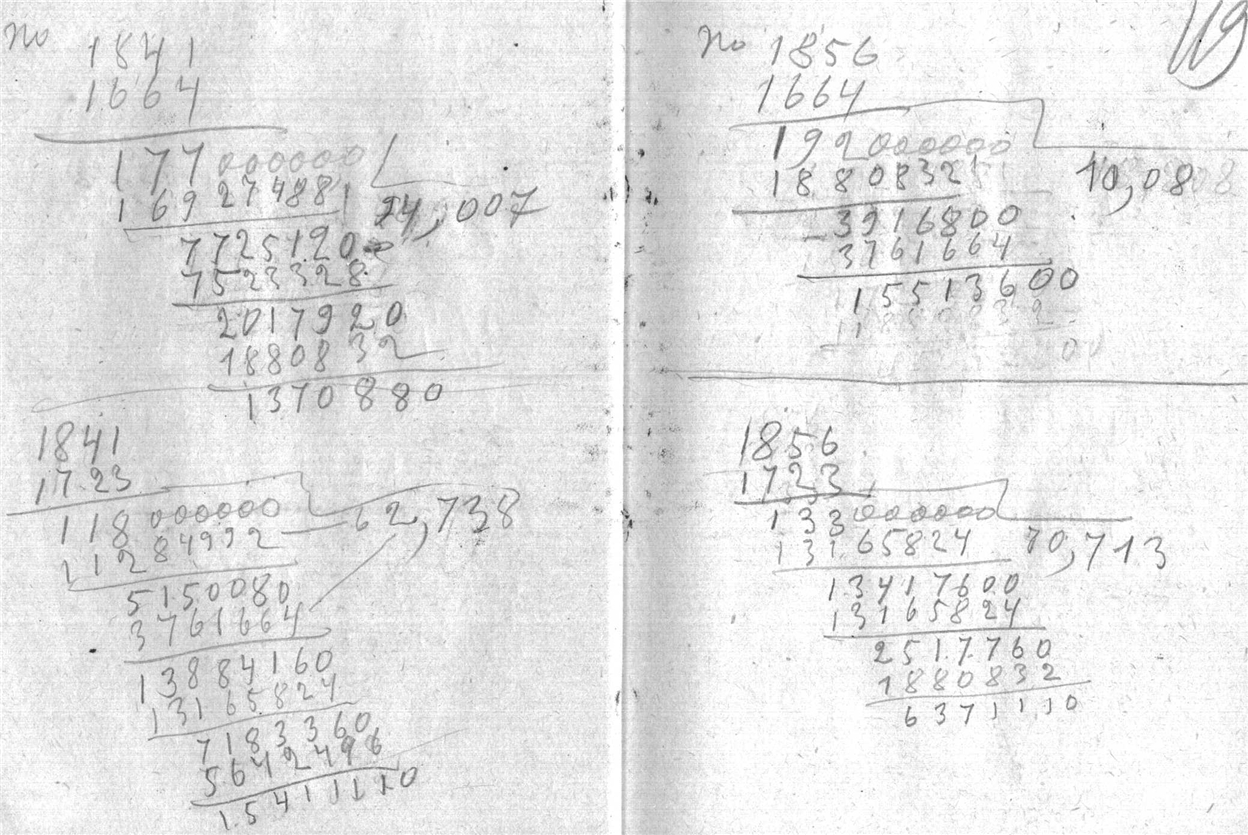 no 1841
1664
177000000
169274881 94,007
77251200
7523328
2017920
1880832
1370880
1841
1723
118000000
11284992 62,738
5150080
3761664
13884160
13165824
7183360
5642496
15411110
119
no 1856
1664
192000000
18808325 10,0808
3916800
3761664
15513600
1723
1856
133000000
13165824 70,713
13417600
13165824
2517760
1880832
6371110